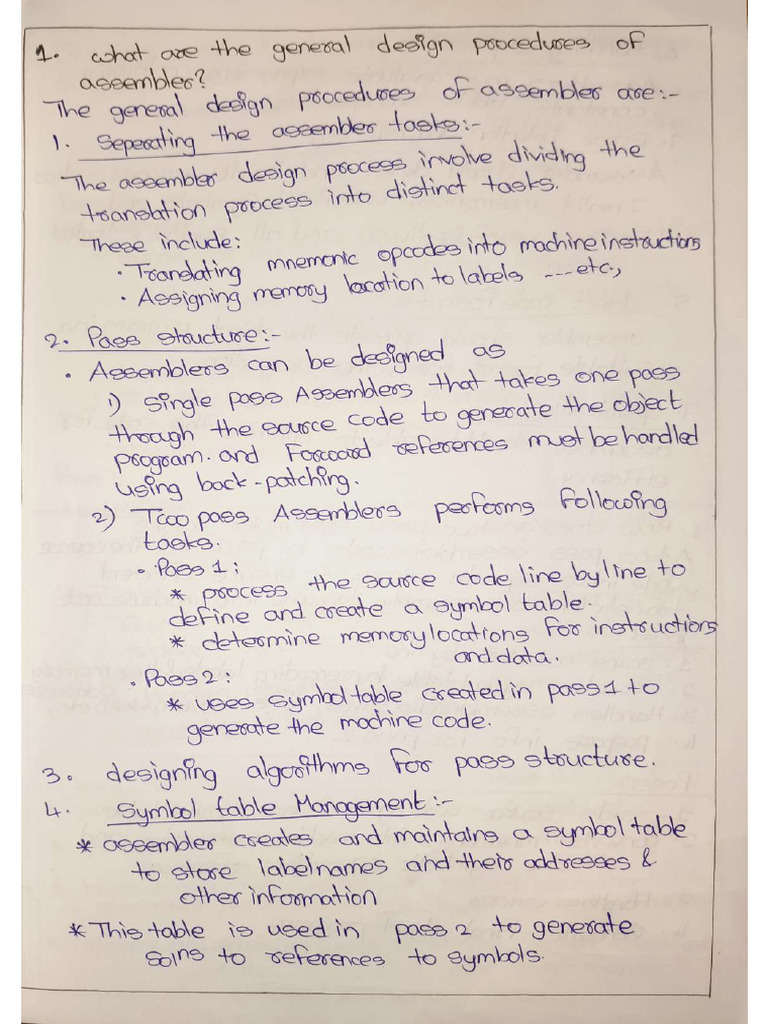 1. what are the general design procedures of
assembler?
The general design procedures of assembler are:-
1. Seperating the assembler tasks:-
The assembler design process involve dividing the
translation process into distinct tasks.
These include:
• Translating mnemonic opcodes into machine instructions
• Assigning memory location to labels ---etc.,
2. Pass structure:-
• Assemblers can be designed as
1) single pass Assemblers that takes one pass
though the source code to generate the object
program. and Forward references must be handled
using back-patching.
2) Two pass Assemblers performs following
tasks.
• Pass 1:
* process the source code line by line to
define and create a symbol table.
* determine memory locations for instructions
and data.
• Pass 2:
* uses symbol table created in pass 1 to
generate the machine code.
3. designing algorithms for pass structure.
4. Symbol table Management:-
* assembler creates and maintains a symbol table
to store label names and their addresses &
other information
* This table is used in pass 2 to generate
solns to references to symbols.